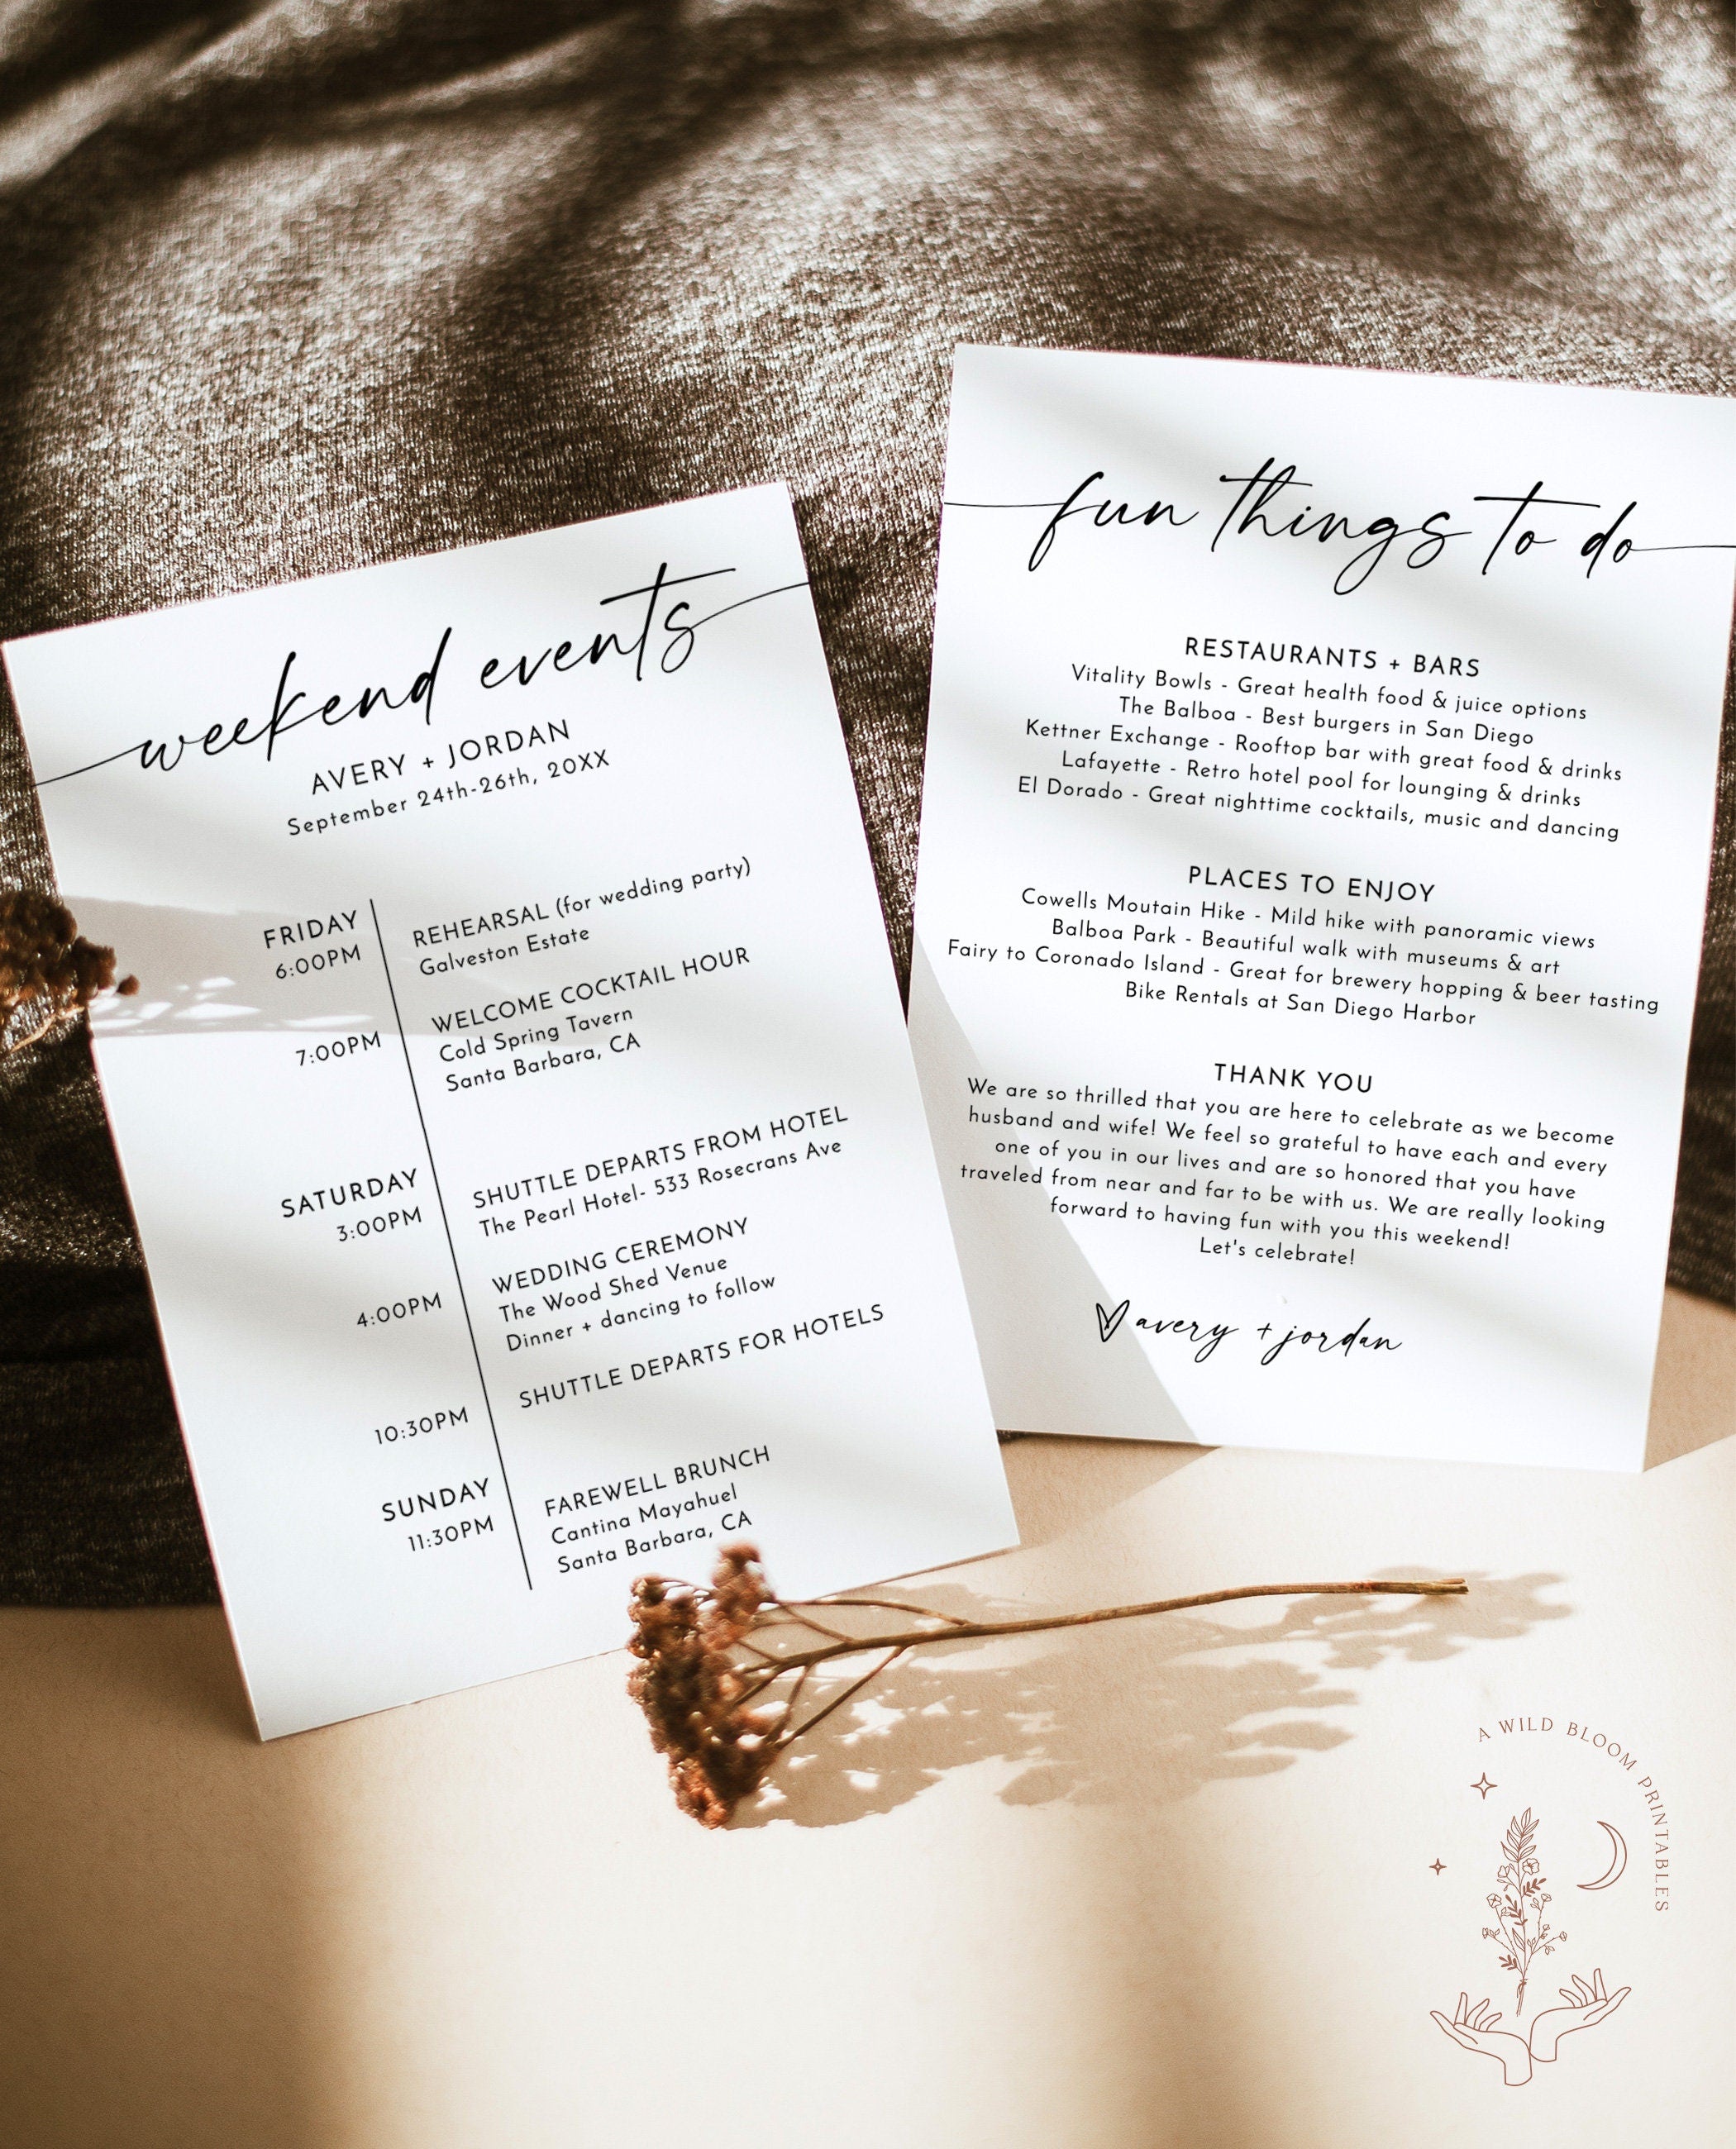 weekend events
AVERY + JORDAN
September 24th-26th, 20XX
FRIDAY
6:00PM
REHEARSAL (for wedding party)
Galveston Estate
7:00PM
WELCOME COCKTAIL HOUR
Cold Spring Tavern
Santa Barbara, CA
SATURDAY
3:00PM
SHUTTLE DEPARTS FROM HOTEL
The Pearl Hotel- 533 Rosecrans Ave
4:00PM
WEDDING CEREMONY
The Wood Shed Venue
Dinner + dancing to follow
10:30PM
SHUTTLE DEPARTS FOR HOTELS
SUNDAY
11:30PM
FAREWELL BRUNCH
Cantina Mayahuel
Santa Barbara, CA
fun things to do
RESTAURANTS + BARS
Vitality Bowls - Great health food & juice options
The Balboa - Best burgers in San Diego
Kettner Exchange - Rooftop bar with great food & drinks
Lafayette - Retro hotel pool for lounging & drinks
El Dorado - Great nighttime cocktails, music and dancing
PLACES TO ENJOY
Cowells Moutain Hike - Mild hike with panoramic views
Balboa Park - Beautiful walk with museums & art
Fairy to Coronado Island - Great for brewery hopping & beer tasting
Bike Rentals at San Diego Harbor
THANK YOU
We are so thrilled that you are here to celebrate as we become
husband and wife! We feel so grateful to have each and every
one of you in our lives and are so honored that you have
traveled from near and far to be with us. We are really looking
forward to having fun with you this weekend!
Let's celebrate!
avery + jordan
A WILD BLOOM PRINTABLES